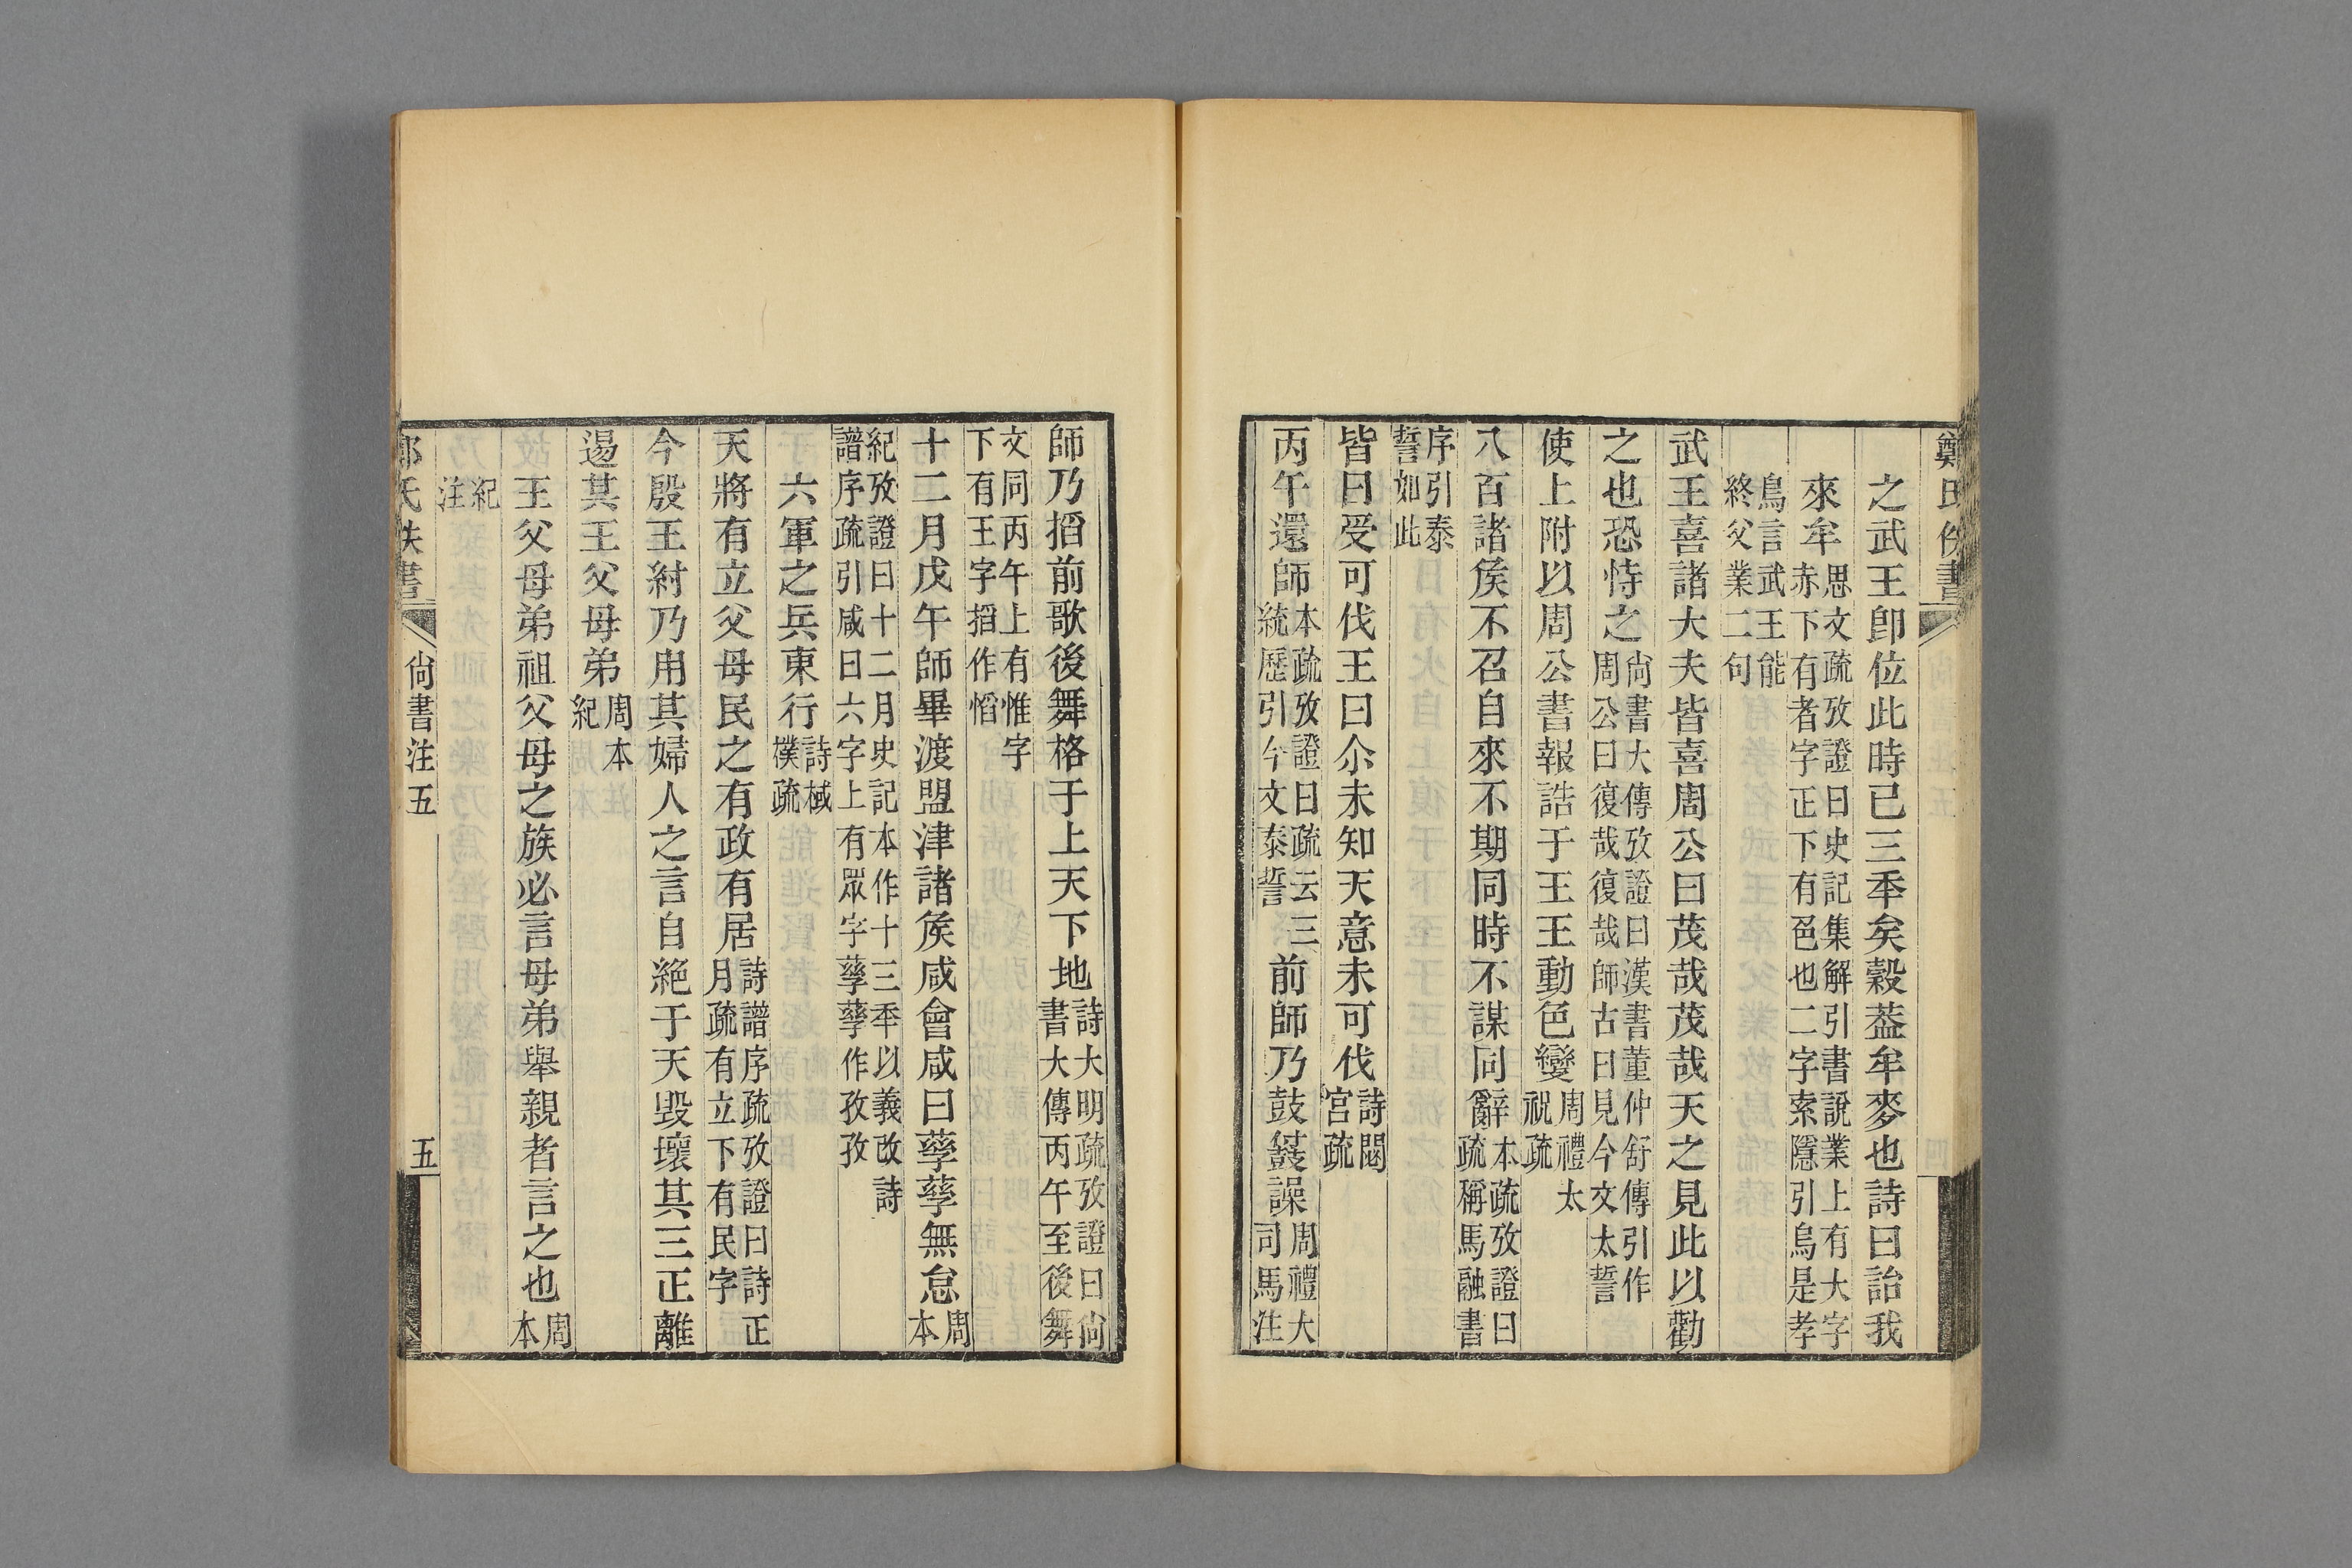 鄭氏佚書
之武王卽位此時已三秊矣穀葢牟麥也詩曰詒我
來牟思文疏攷證曰史記集解引書說業上有大字赤下有者字正下有色也二字索隱引鳥是孝
鳥言武王能終父業二句
武王喜諸大夫皆喜周公曰茂哉茂哉天之見此以勸
之也恐恃之尙書大傳攷證曰漢書董仲舒傳引作周公曰復哉復哉師古曰見今文太誓
使上附以周公書報誥于王王動色變周禮太祝疏
八百諸矦不召自來不期同時不謀同辭本疏攷證曰疏稱馬融書
序引泰誓如此
皆曰受可伐王曰尒未知天意未可伐詩閟宮疏
丙午還師本疏攷證曰疏云三統歷引今文泰誓前師乃鼓鼗譟周禮大司馬注
師乃搯前歌後舞格于上天下地詩大明疏攷證曰尙書大傳丙午至後舞
文同丙午上有惟字下有王字搯作慆
十二月戊午師畢渡盟津諸矦咸會咸曰孳孳無怠周本
紀攷證曰十二月史記本作十三秊以義改詩譜序疏引咸曰六字上有眾字孳孳作孜孜
六軍之兵東行詩棫樸疏
天將有立父母民之有政有居詩譜序疏攷證曰詩正月疏有立下有民字
今殷王紂乃用其婦人之言自絕于天毀壞其三正離
逷其王父母弟周本紀
王父母弟祖父母之族必言母弟舉親者言之也周本
紀注
鄭氏佚書
尙書注五
五